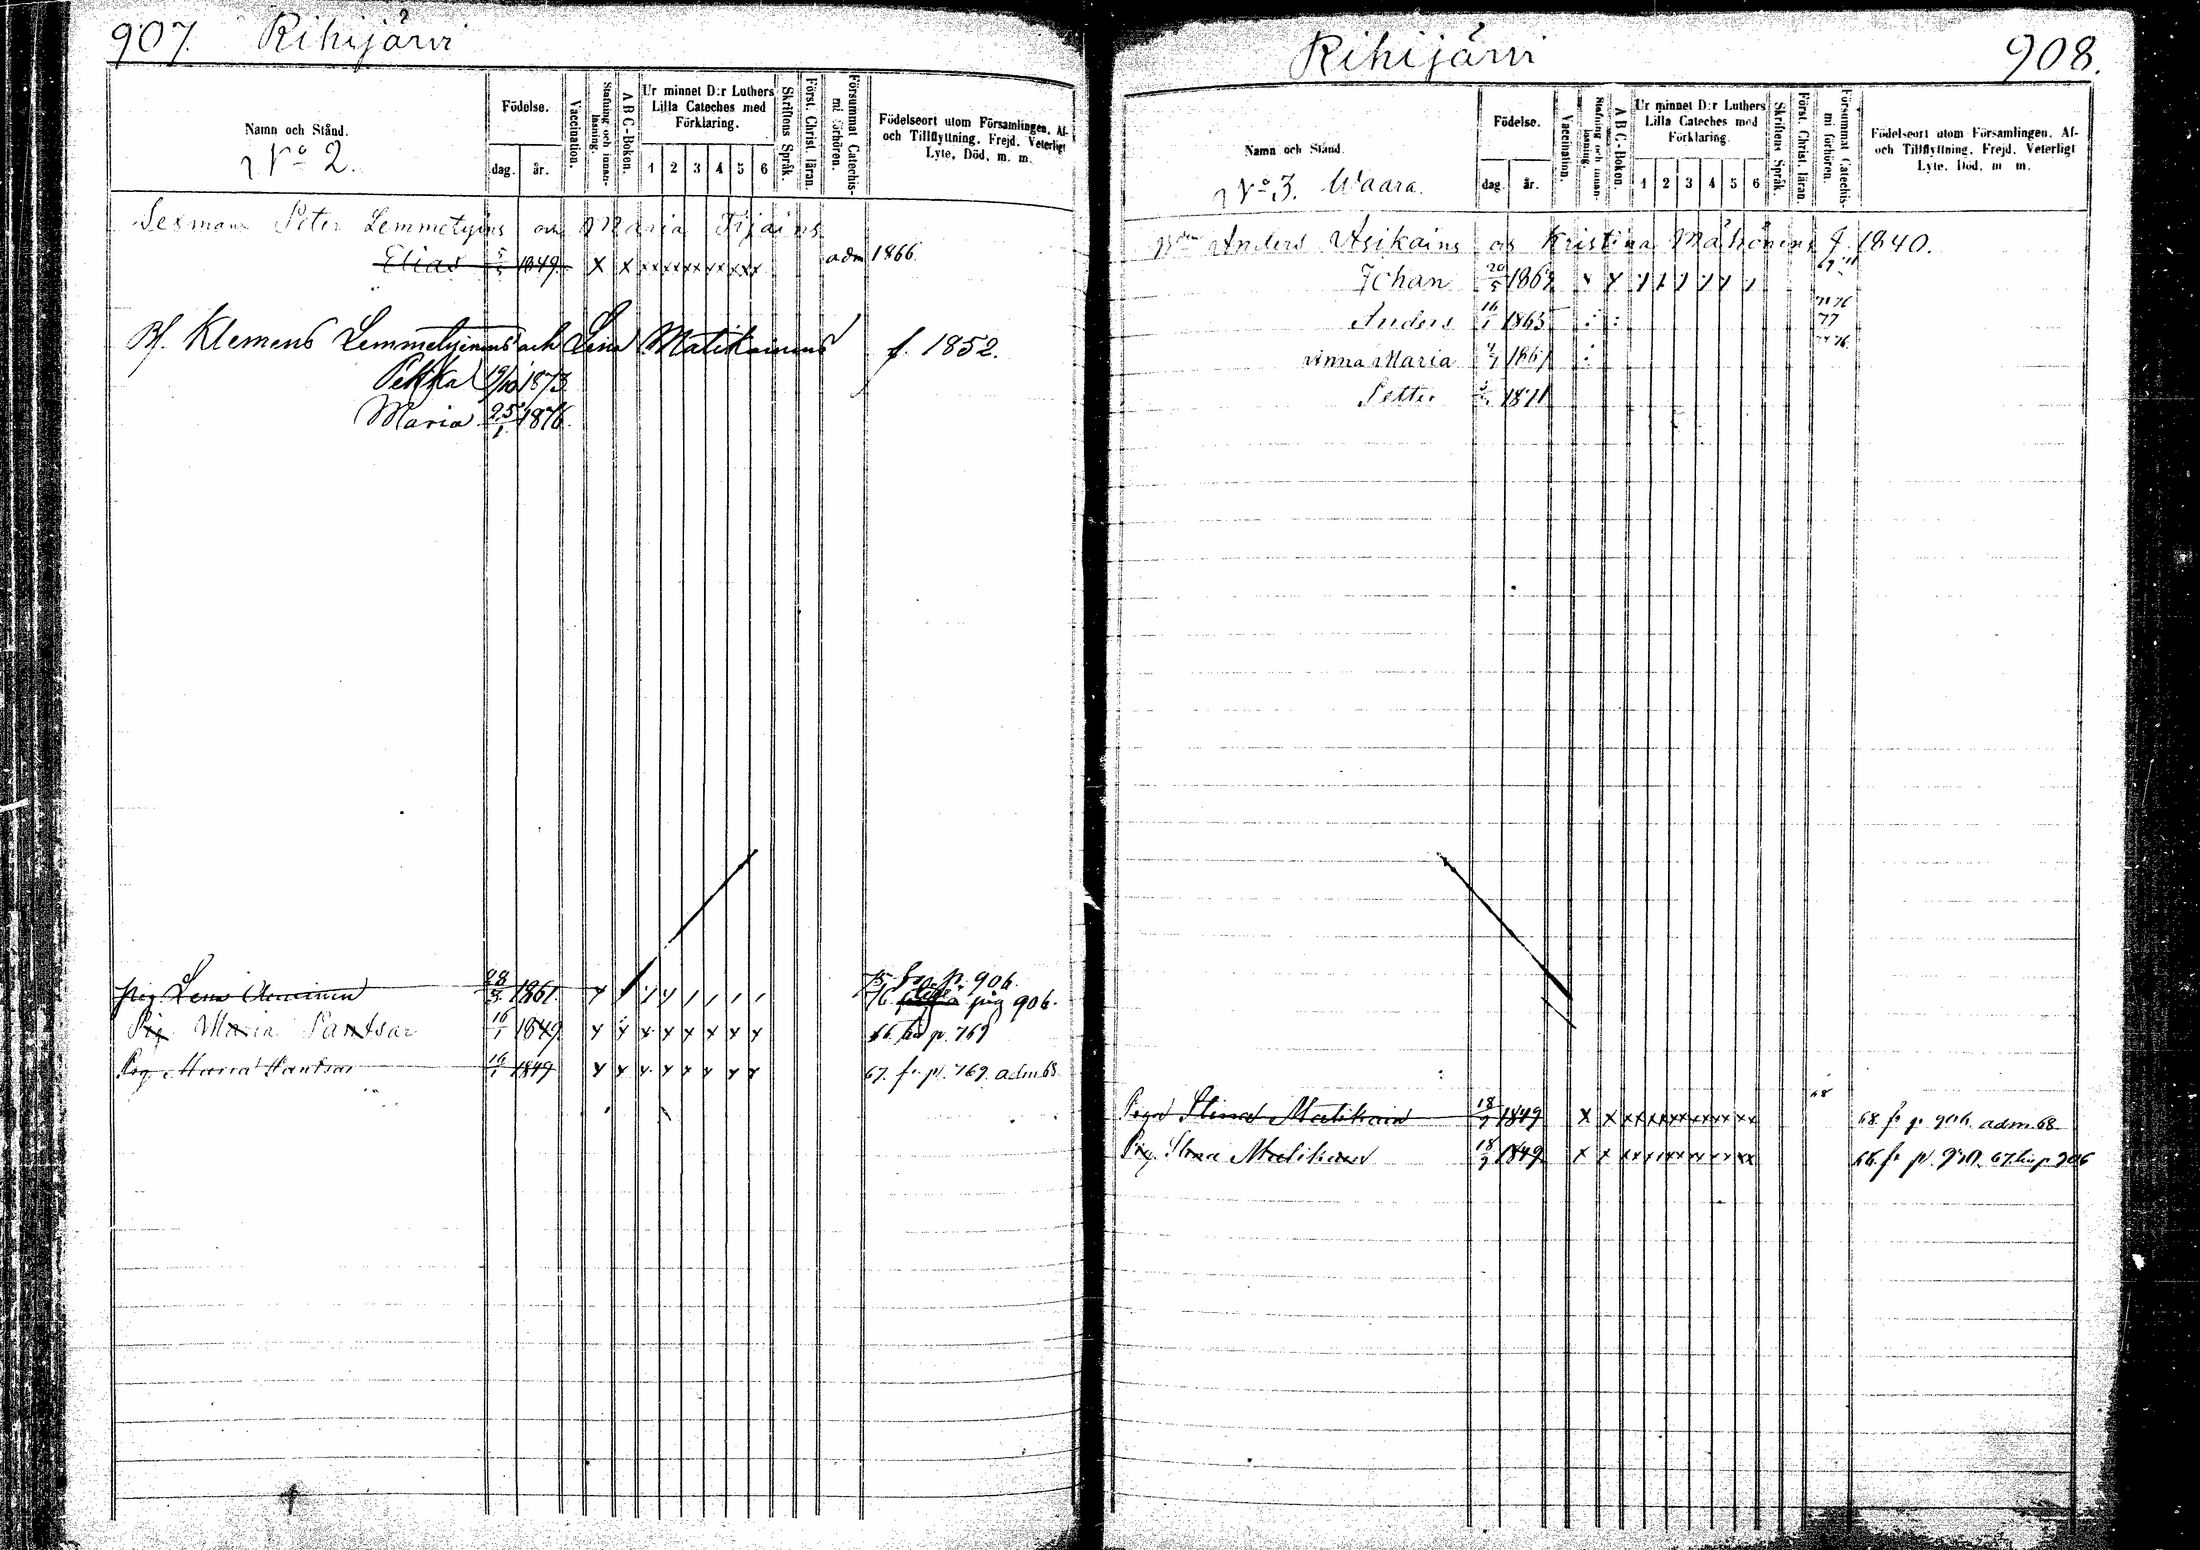 907. Rihijärvi
Namn och Stånd.
No 2.
Födelse.
dag. år.
Vaccination.
Stafning och innan-läsning.
A B C-Boken.
Ur minnet D:r Luthers Lilla Cateches med Förklaring.
1 2 3 4 5 6
Skriftens Språk.
Först. Christ. läran.
Försummat Catechis-mi förhören.
Födelseort utom Församlingen. Af- och Tillflyttning. Frejd. Veterligt Lyte, Död, m. m.
Sexman Peter Lemmetyins och Maria Tijains
Elias 1849 X X xx xx xx xx xxx adm 1866.
Bf. Klemens Lemmetyinens och Lena Matikainens f. 1852.
Pekka 19/10 1873
Maria 25/1 1876.
pig Lena 28/3 1861 75 fr. p. 906.
76 pig 906.
Pig Maria Pantsar 16/1 1849 x x x x x x x x 66 till p. 769
Pig Maria Pantsar 16/1 1849 x x x x x x x x 67. fr. p. 769. adm 68
Rihijärvi 908.
Namn och Stånd.
No 3. Waara.
Födelse.
dag. år.
Vaccination.
Stafning och innan-läsning.
A B C-Boken.
Ur minnet D:r Luthers Lilla Cateches med Förklaring.
1 2 3 4 5 6
Skriftens Språk.
Först. Christ. läran.
Försummat Catechis-mi förhören.
Födelseort utom Församlingen. Af- och Tillflyttning. Frejd. Veterligt Lyte, Död, m. m.
Anders Asikains och Kristina Måhönens f. 1840.
Johan 20/5 1862
Anders 16/1 1865 77
Anna Maria 1867
Petter 1871
68
Pigan Stina Matikain 18/9 1849 X X xx xx xx xx xx xx 68 fr p. 906 adm 68
Pig. Stina Matikain 18/9 1849 x x xx xx xx xx x xx 66 fr p. 67 till p 906